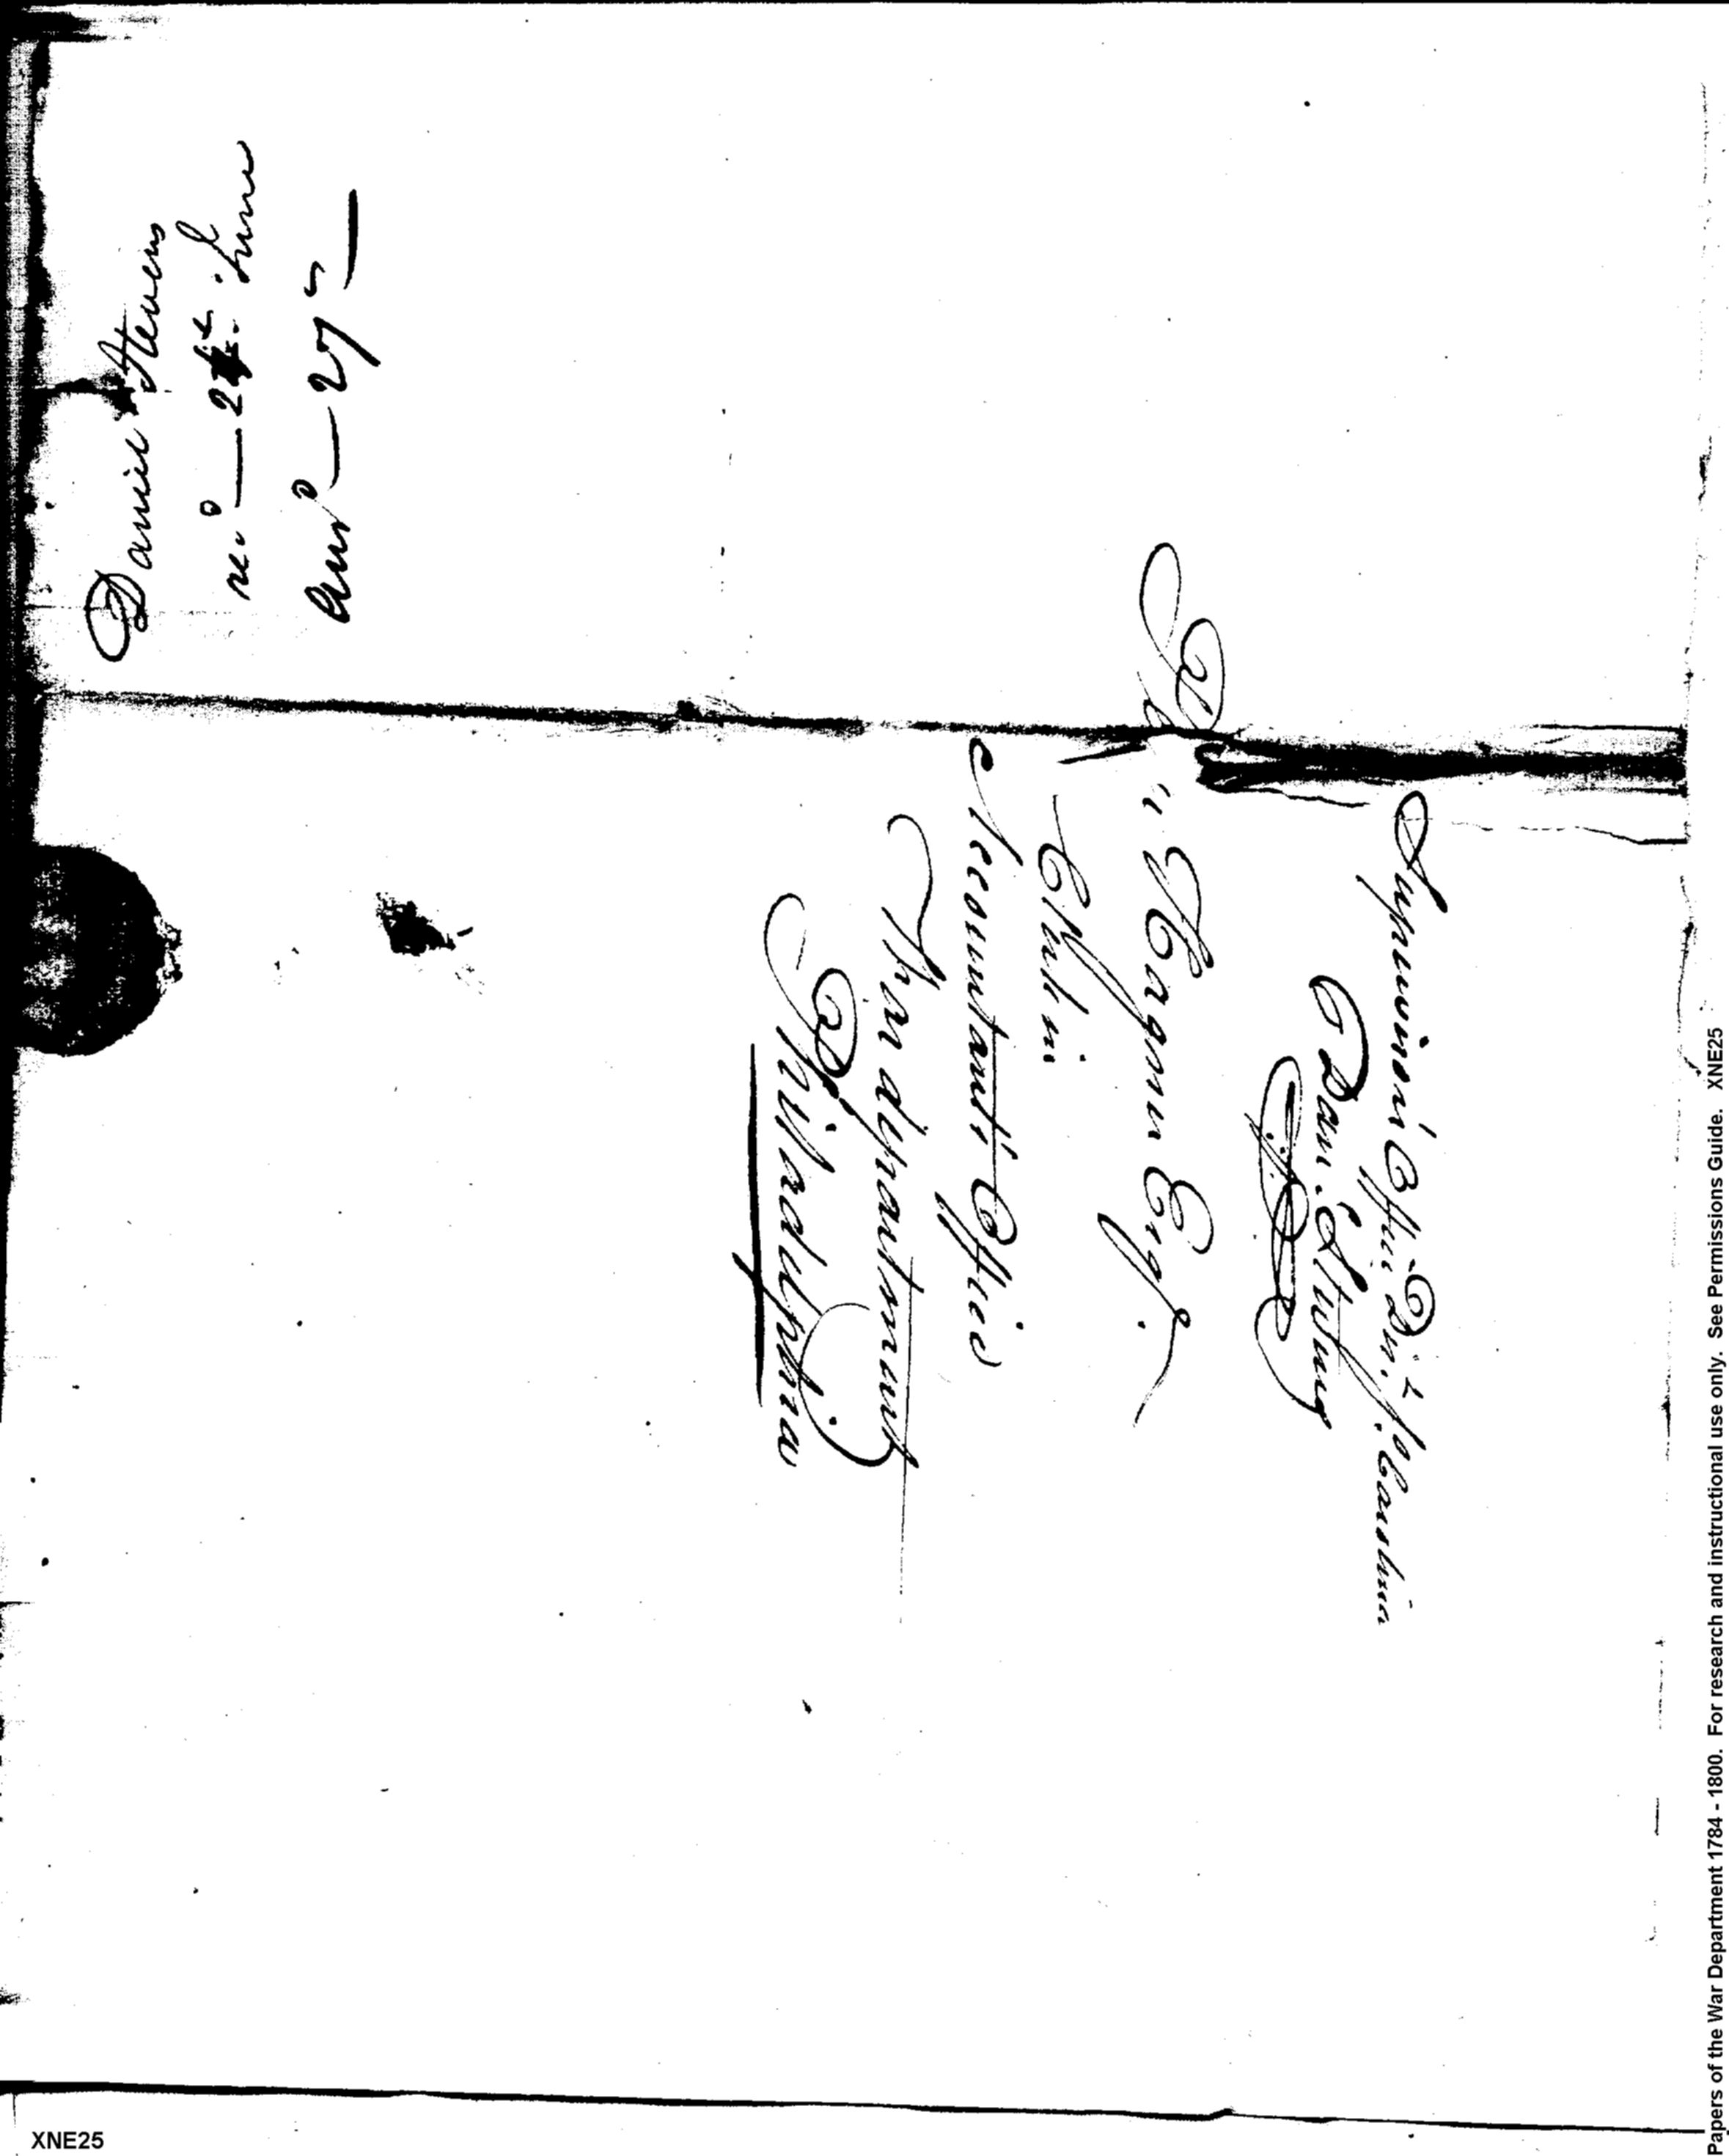 Daniel Stevens
recd — 21st June
ansd — 27 —
Supervisors Office Dist. S. Carolina
Dan. Stevens
Pe Hagner Esq.
Clerk in
Accountants Office
War department
Philadelphia
Papers of the War Department 1784 - 1800. For research and instructional use only. See Permissions Guide. XNE25
XNE25